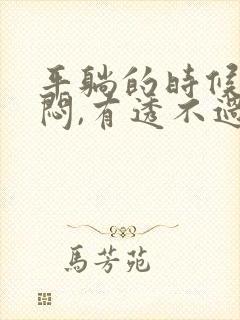 平躺的時候
悶,有透不過
馬芳苑